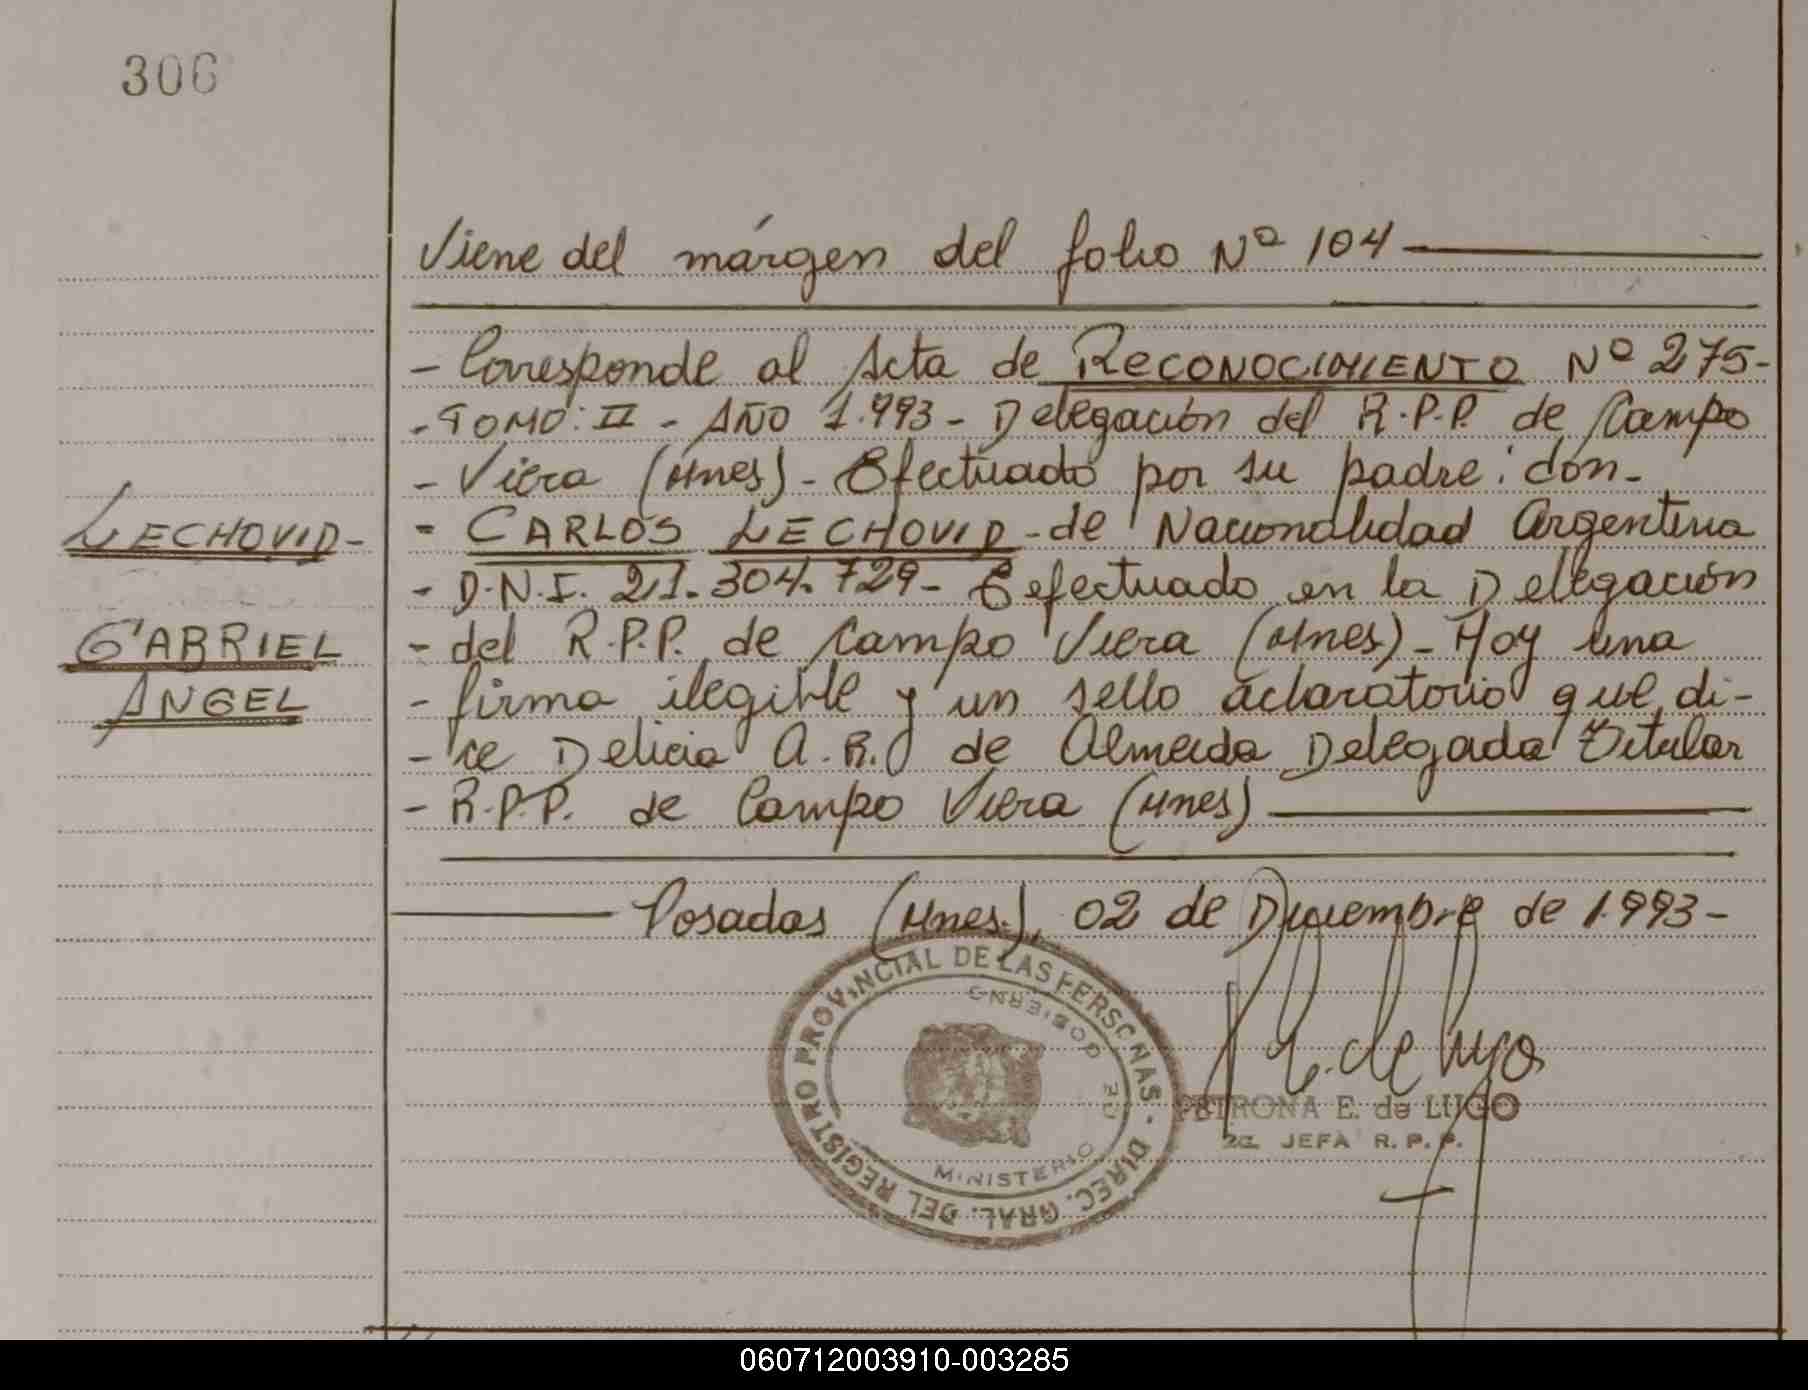 306
Viene del márgen del folio Nº 104
- Corresponde al Acta de RECONOCIMIENTO Nº 275-
- TOMO: II - AÑO 1.993 - Delegación del R.P.P. de Campo
- Viera (Mnes) - Efectuado por su padre: don-
LECHOVID-
- CARLOS LECHOVID - de Nacionalidad Argentina
- D.N.I. 21.304.729 - Efectuado en la Delegación
GABRIEL
- del R.P.P. de Campo Viera (Mnes) - Hoy una
ANGEL
- firma ilegible y un sello aclaratorio que di-
- ce Delicia A. R. de Almeida Delegada Titular
- R.P.P. de Campo Viera (Mnes)
Posadas (Mnes.), 02 de Diciembre de 1.993-
DIREC. GRAL. DEL REGISTRO PROVINCIAL DE LAS PERSONAS -
MINISTERIO DE GOBIERNO
PETRONA E. de LUGO
2a JEFA R. P. P.
060712003910-003285